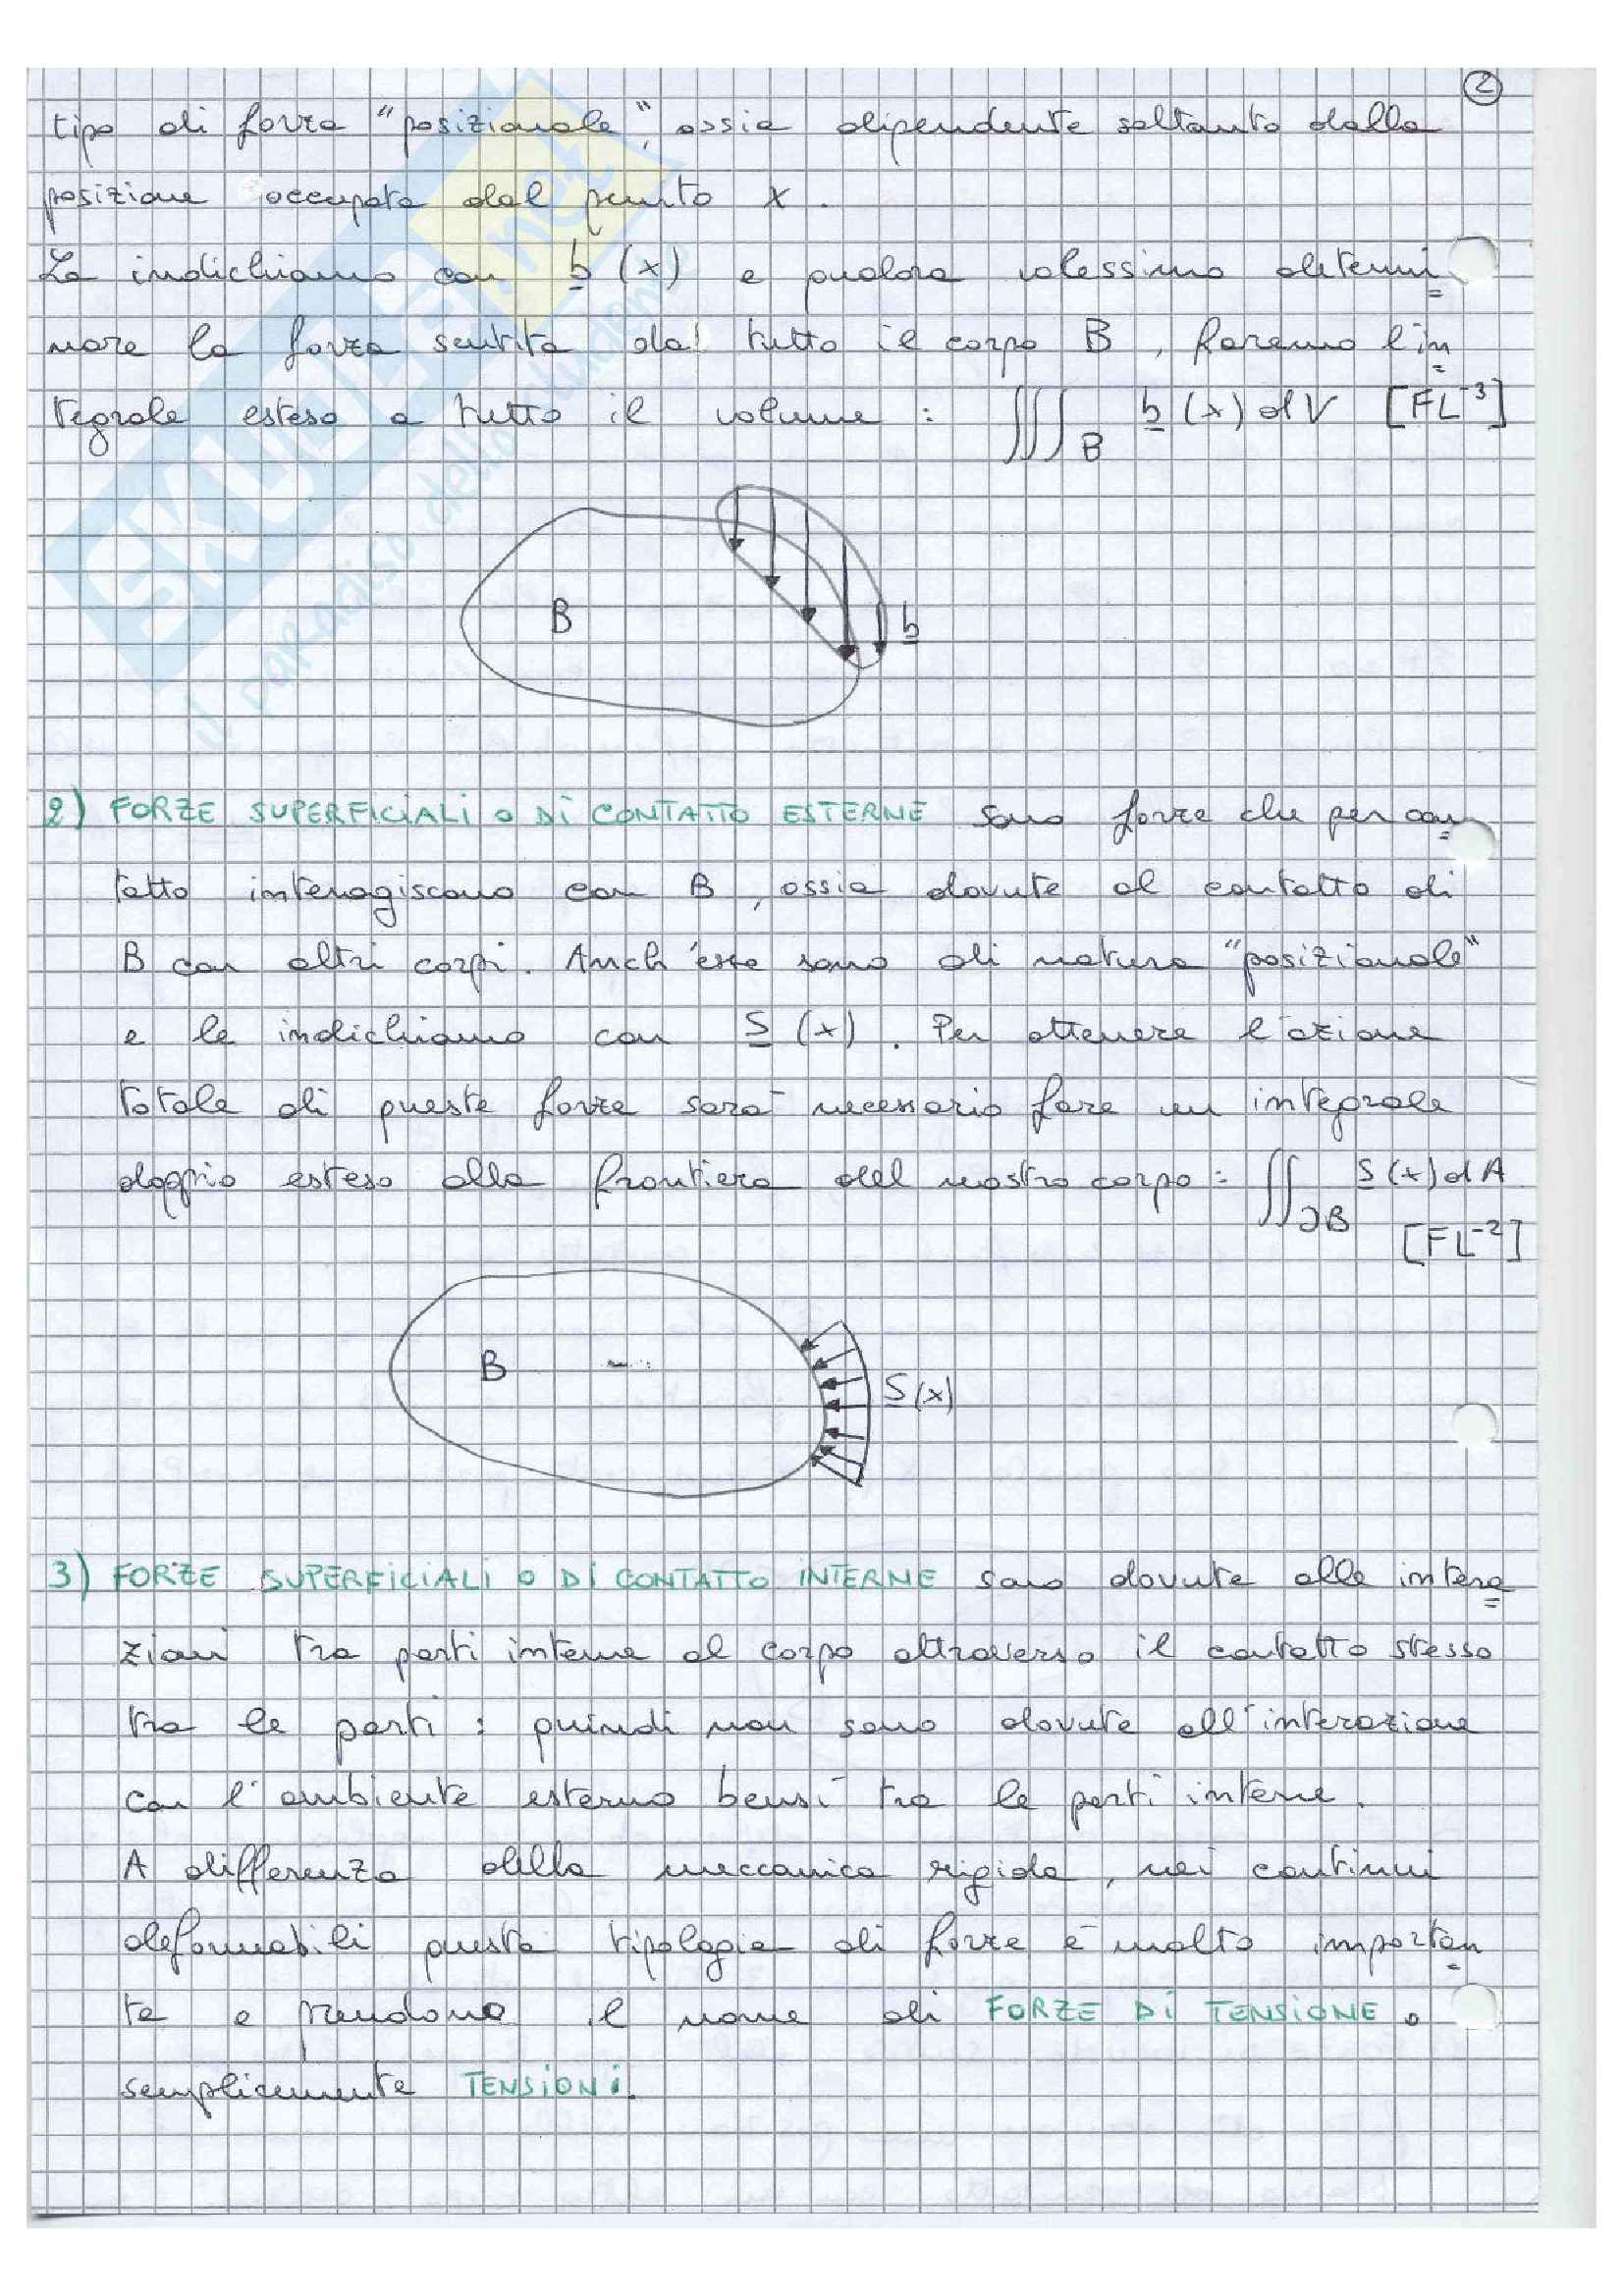 2
tipo di forza "posizionale", ossia dipendente soltanto dalla
posizione occupata dal punto x.
La indichiamo con b (x) e qualora volessimo determi
nare la forza sentita dal tutto il corpo B, faremo l'in
tegrale esteso a tutto il volume : ∭B b (x) dV [FL⁻³]
B
b
2) FORZE SUPERFICIALI O DI CONTATTO ESTERNE sono forze che per con
tatto interagiscono con B, ossia dovute al contatto di
B con altri corpi. Anch'esse sono di natura "posizionale"
e le indichiamo con S (x). Per ottenere l'azione
totale di queste forze sarà necessario fare un integrale
doppio esteso alla frontiera del nostro corpo: ∬∂B S (x) dA
[FL⁻²]
B
S (x)
3) FORZE SUPERFICIALI O DI CONTATTO INTERNE sono dovute alle intera
zioni tra parti interne al corpo attraverso il contatto stesso
tra le parti : quindi non sono dovute all'interazione
con l'ambiente esterno bensì tra le parti interne.
A differenza della meccanica rigida, nei continui
deformabili questa tipologia di forze è molto importan
te e prendono il nome di FORZE DI TENSIONE o
semplicemente TENSIONI.
SKUOLA.net
il paradiso dello studente